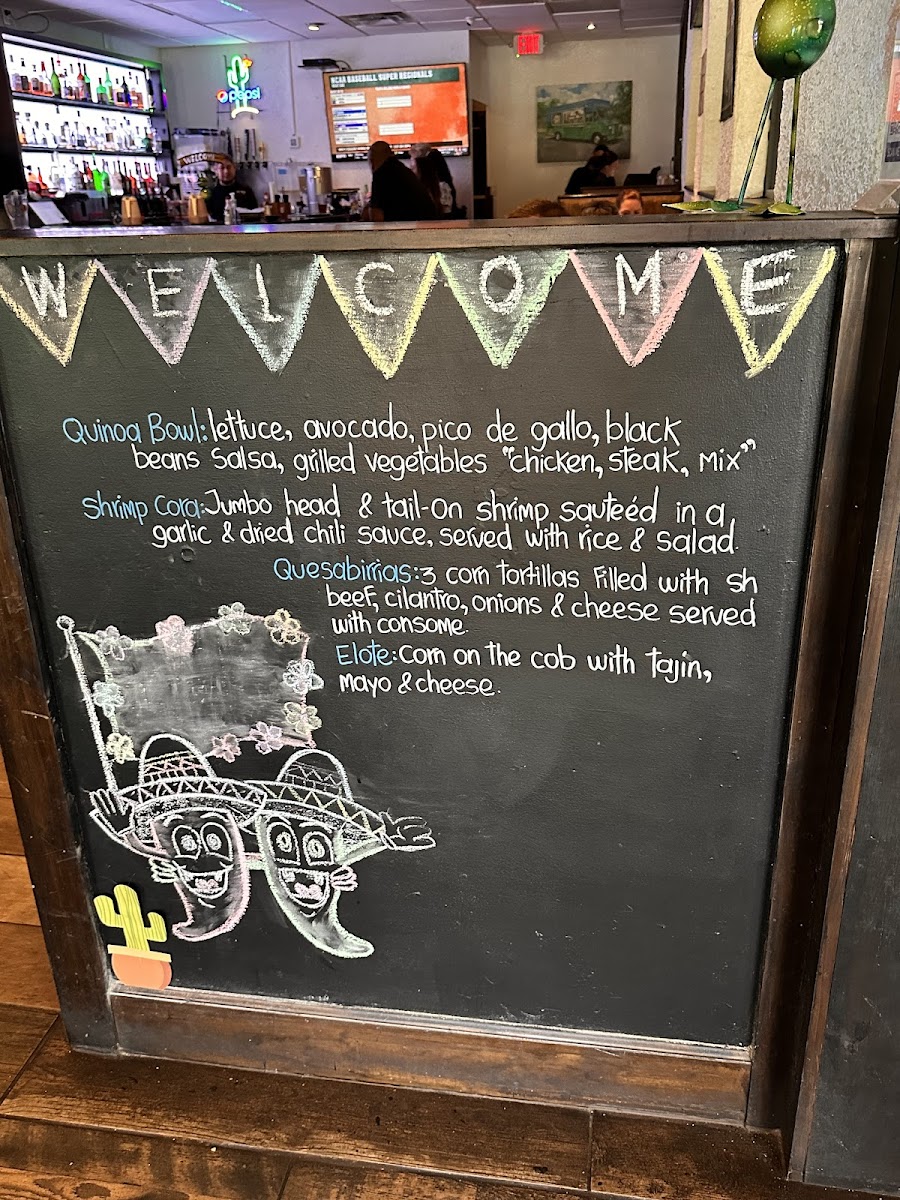 pepsi
WELCOME
NCAA BASEBALL SUPER REGIONALS
WELCOME
Quinoa Bowl: lettuce, avocado, pico de gallo, black
beans Salsa, grilled vegetables "chicken, steak, Mix"
Shrimp Cora: Jumbo head & tail-On shrimp sauteéd in a
garlic & dried chili sauce, served with rice & salad.
Quesabirrias: 3 corn tortillas Filled with sh
beef, cilantro, onions & cheese served
with consome.
Elote: Corn on the cob with tajin,
mayo & cheese.